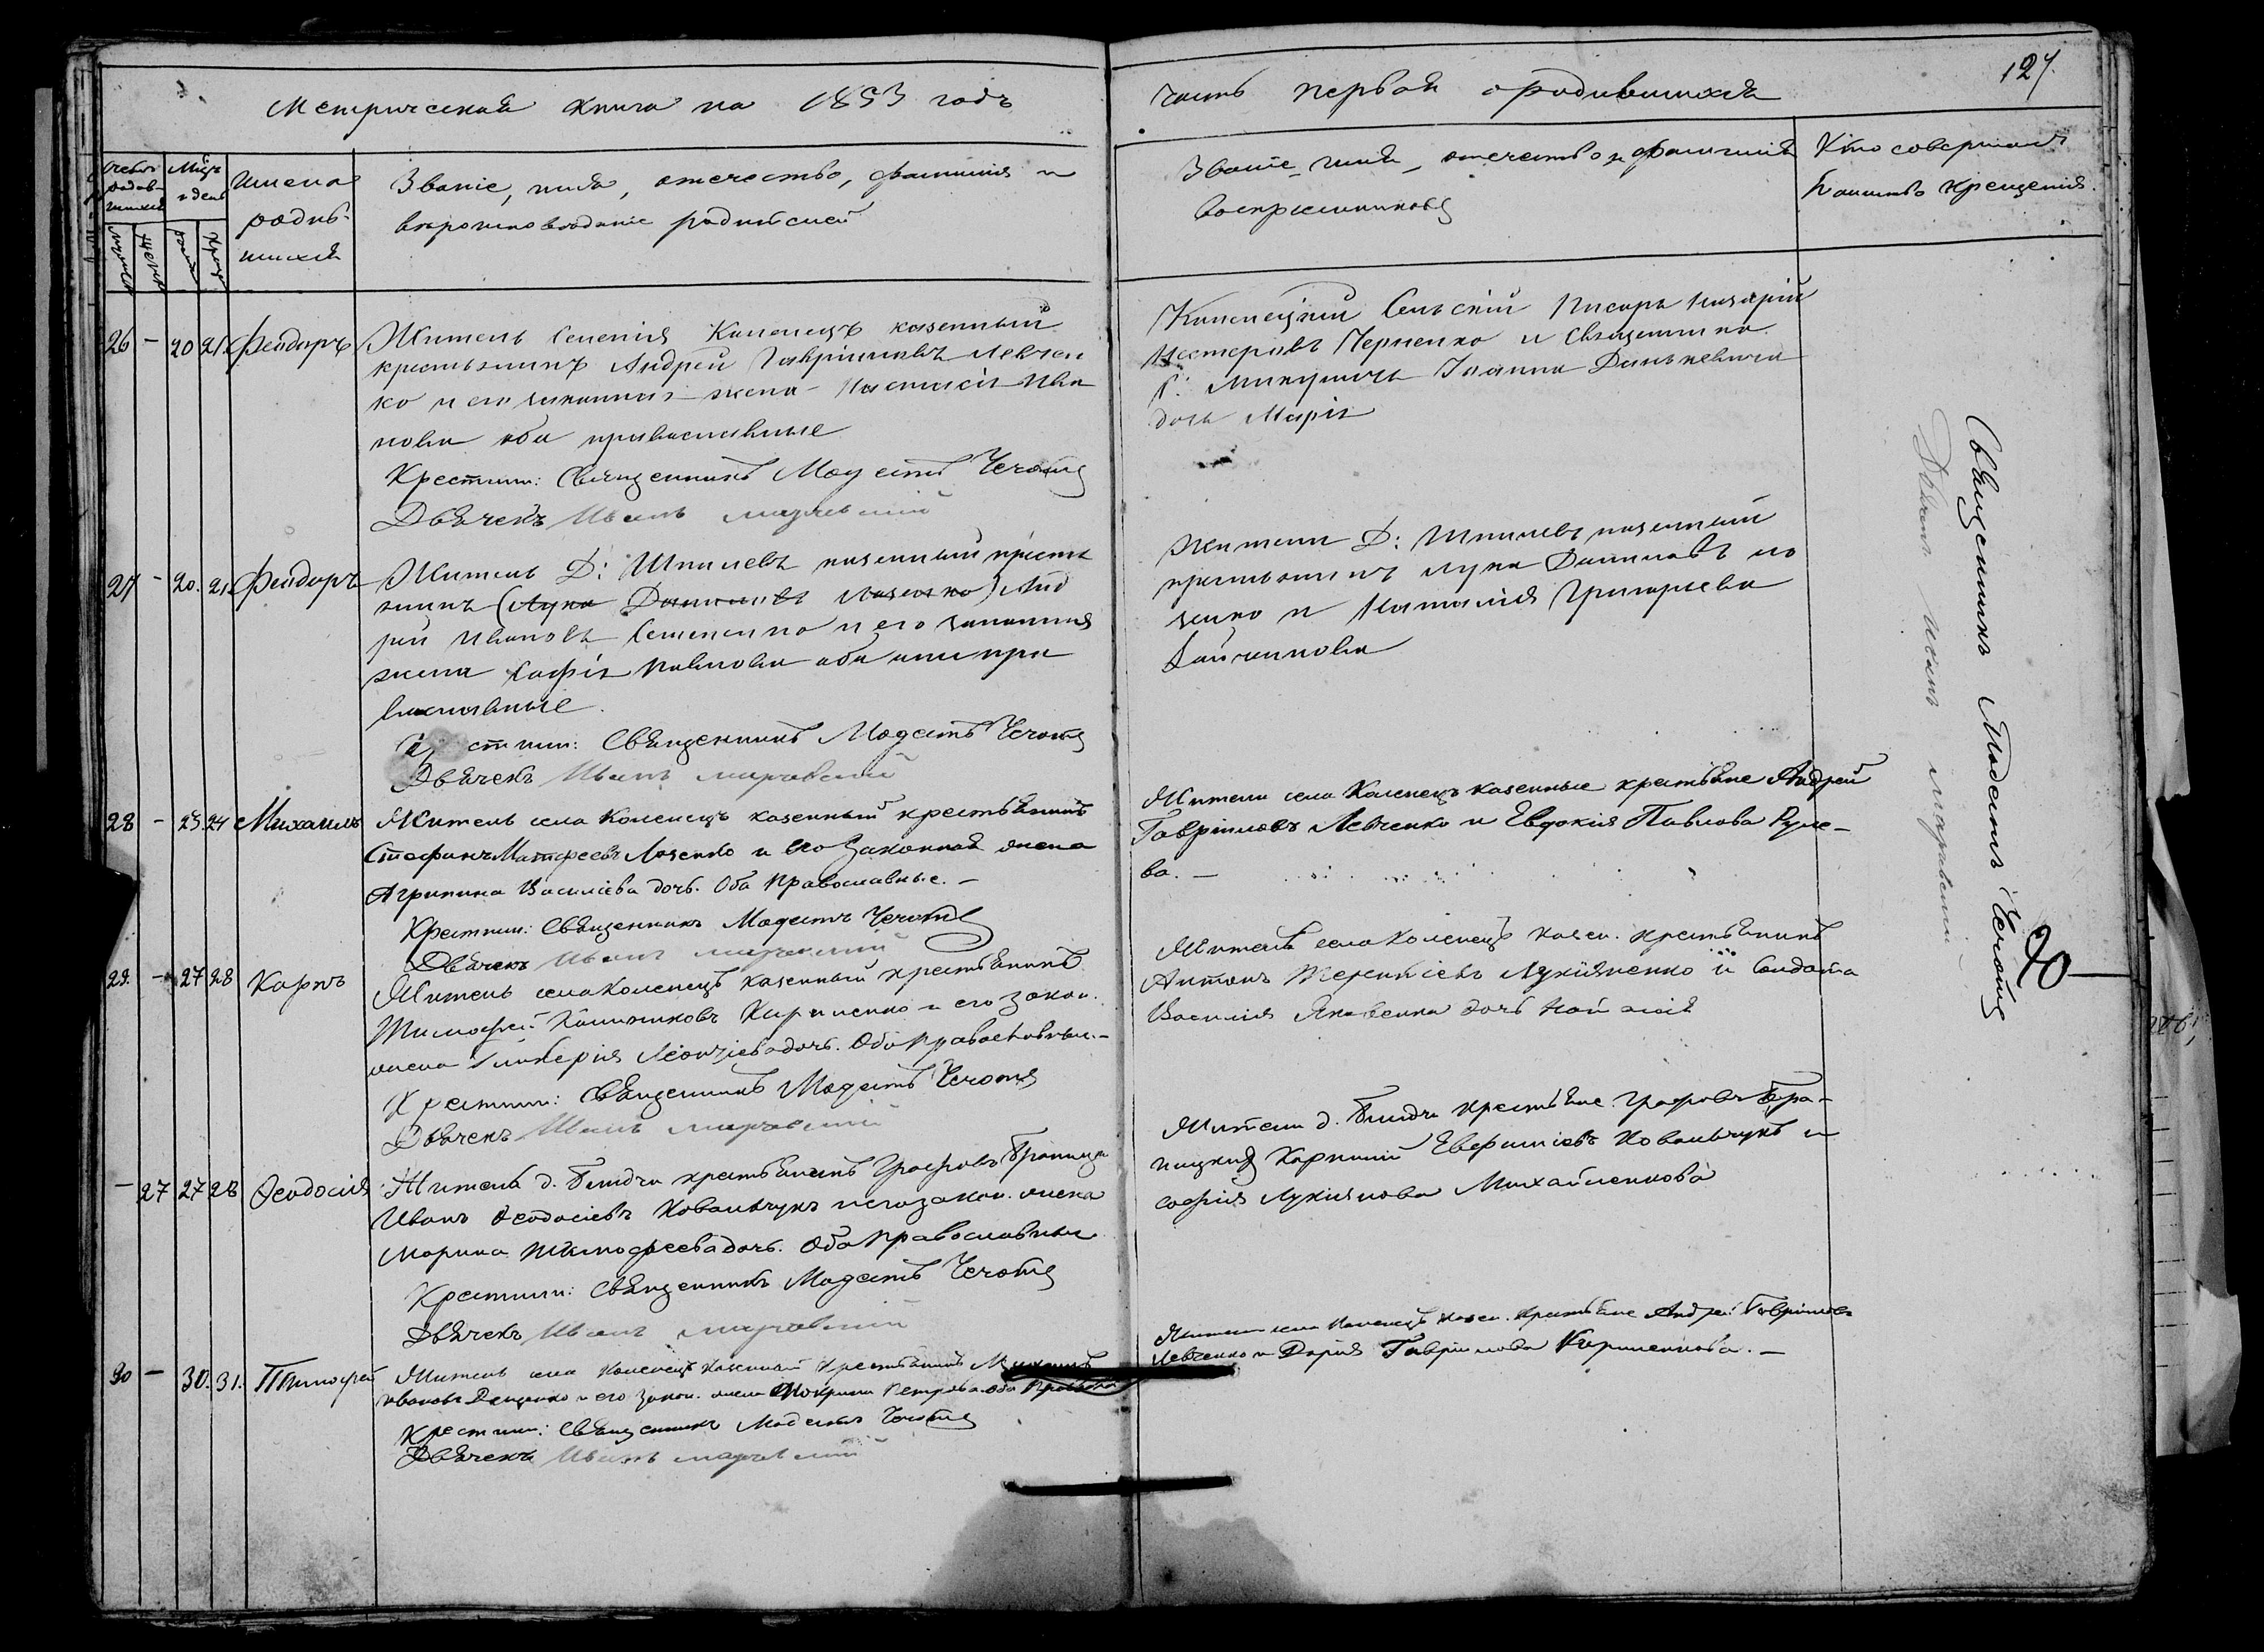 Метрическая книга на 1853 годъ
часть первая о родившихся
127.
Счетъ родив-шихся
Мѣць и день
Имена родив-шихся
Званіе, имя, отечество, фамилія и
вѣроисповѣданіе родителей
Званіе, имя, отечество и фамилія
воспріемниковъ
Кто совершалъ
таинство крещенія.
26 – 20 21 Феодоръ
Житель селенія Каленецъ казенный
крестьянинъ Андрей Гавриловъ Левчен
ко и его законная жена Настасія Ива
нова оба православные
Крестилъ: Священникъ Модестъ Чечотъ
Дьячекъ Иванъ
Каленецкій Сельскій Писарь Назарій
Нестеровъ Черненко и Священника
Іоанна Данькевича
дочь Марія
27 – 20. 21. Феодоръ
Житель Д: Шпилевъ казенный кресть
янинъ (Лука Даниловъ Лазенко) Анд
рей Ивановъ Семененко и его законная
жена Софія Павлова оба они пра
вославные.
стилъ: Священникъ Модестъ Чечотъ
Дьячекъ Иванъ
Жители Д: Шпилевъ казенный
крестьянинъ Лука Даниловъ Ло
зенко и Наталія Григорьева
28 – 23. 24 Михаилъ
Житель села Каленецъ казенный крестьянинъ
Стефанъ Матфеевъ Лозенко и его законная жена
Агрипина Василіева дочь. Оба православные. –
Крестилъ: Священникъ Модестъ Чечотъ
Дьячекъ Иванъ
Жители села Каленецъ казенные крестьяне Андрей
Гавріиловъ Левченко и Евдокія Павлова Руле-
ва. –
29. – 27 28 Карпъ
Житель села Каленецъ казенный крестьянинъ
Тимофей Каленниковъ Кириленко и его закон.
жена Гликерія Леонтіева дочь. Оба православные. –
Крестилъ: Священникъ Модестъ Чечотъ
Дьячекъ Иванъ
Житель села Каленецъ казен. крестьянинъ
Антонъ Терентіевъ Лукіяненко и Солдата
Василія Яковенка дочь
– 27 27 28 Феодосія
Житель д. крестьянинъ Графовъ Браницк
Иванъ Феодосіевъ Ковальчукъ и его закон. жена
Марина Тимофеева дочь. Оба православные
Крестилъ: Священникъ Модестъ Чечотъ
Дьячекъ Иванъ
Жители д. крестьяне Графовъ Бра-
ницких Карпъ Евфиміевъ Ковальчукъ и
Софія Лукіянова Михайленкова
30 – 30. 31. Тимофей
Житель села Каленецъ казенный крестьянинъ Михаилъ
Ивановъ Даценко и его закон. жена Мокрина Петрова. Оба
Крестилъ: Священникъ Модестъ Чечотъ
Дьячекъ Иванъ
Жители села Каленецъ казен. крестьяне Андрей Гавріиловъ
Левченко и Дарія Гавріилова Кириленкова. –
Священникъ Модестъ Чечотъ
Дьячекъ Иванъ